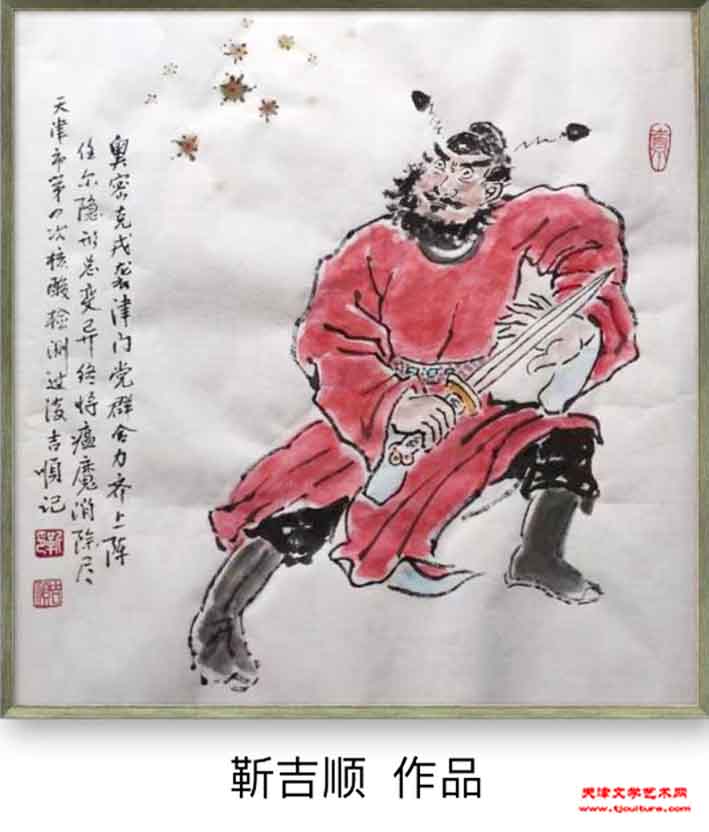 奥密克戎袭津门党群合力齐上阵
任尔隐形总变异终将瘟魔消除尽
天津市第四次核酸检测过后吉顺记
靳吉顺 作品
天津文学艺术网
www.tjculture.com